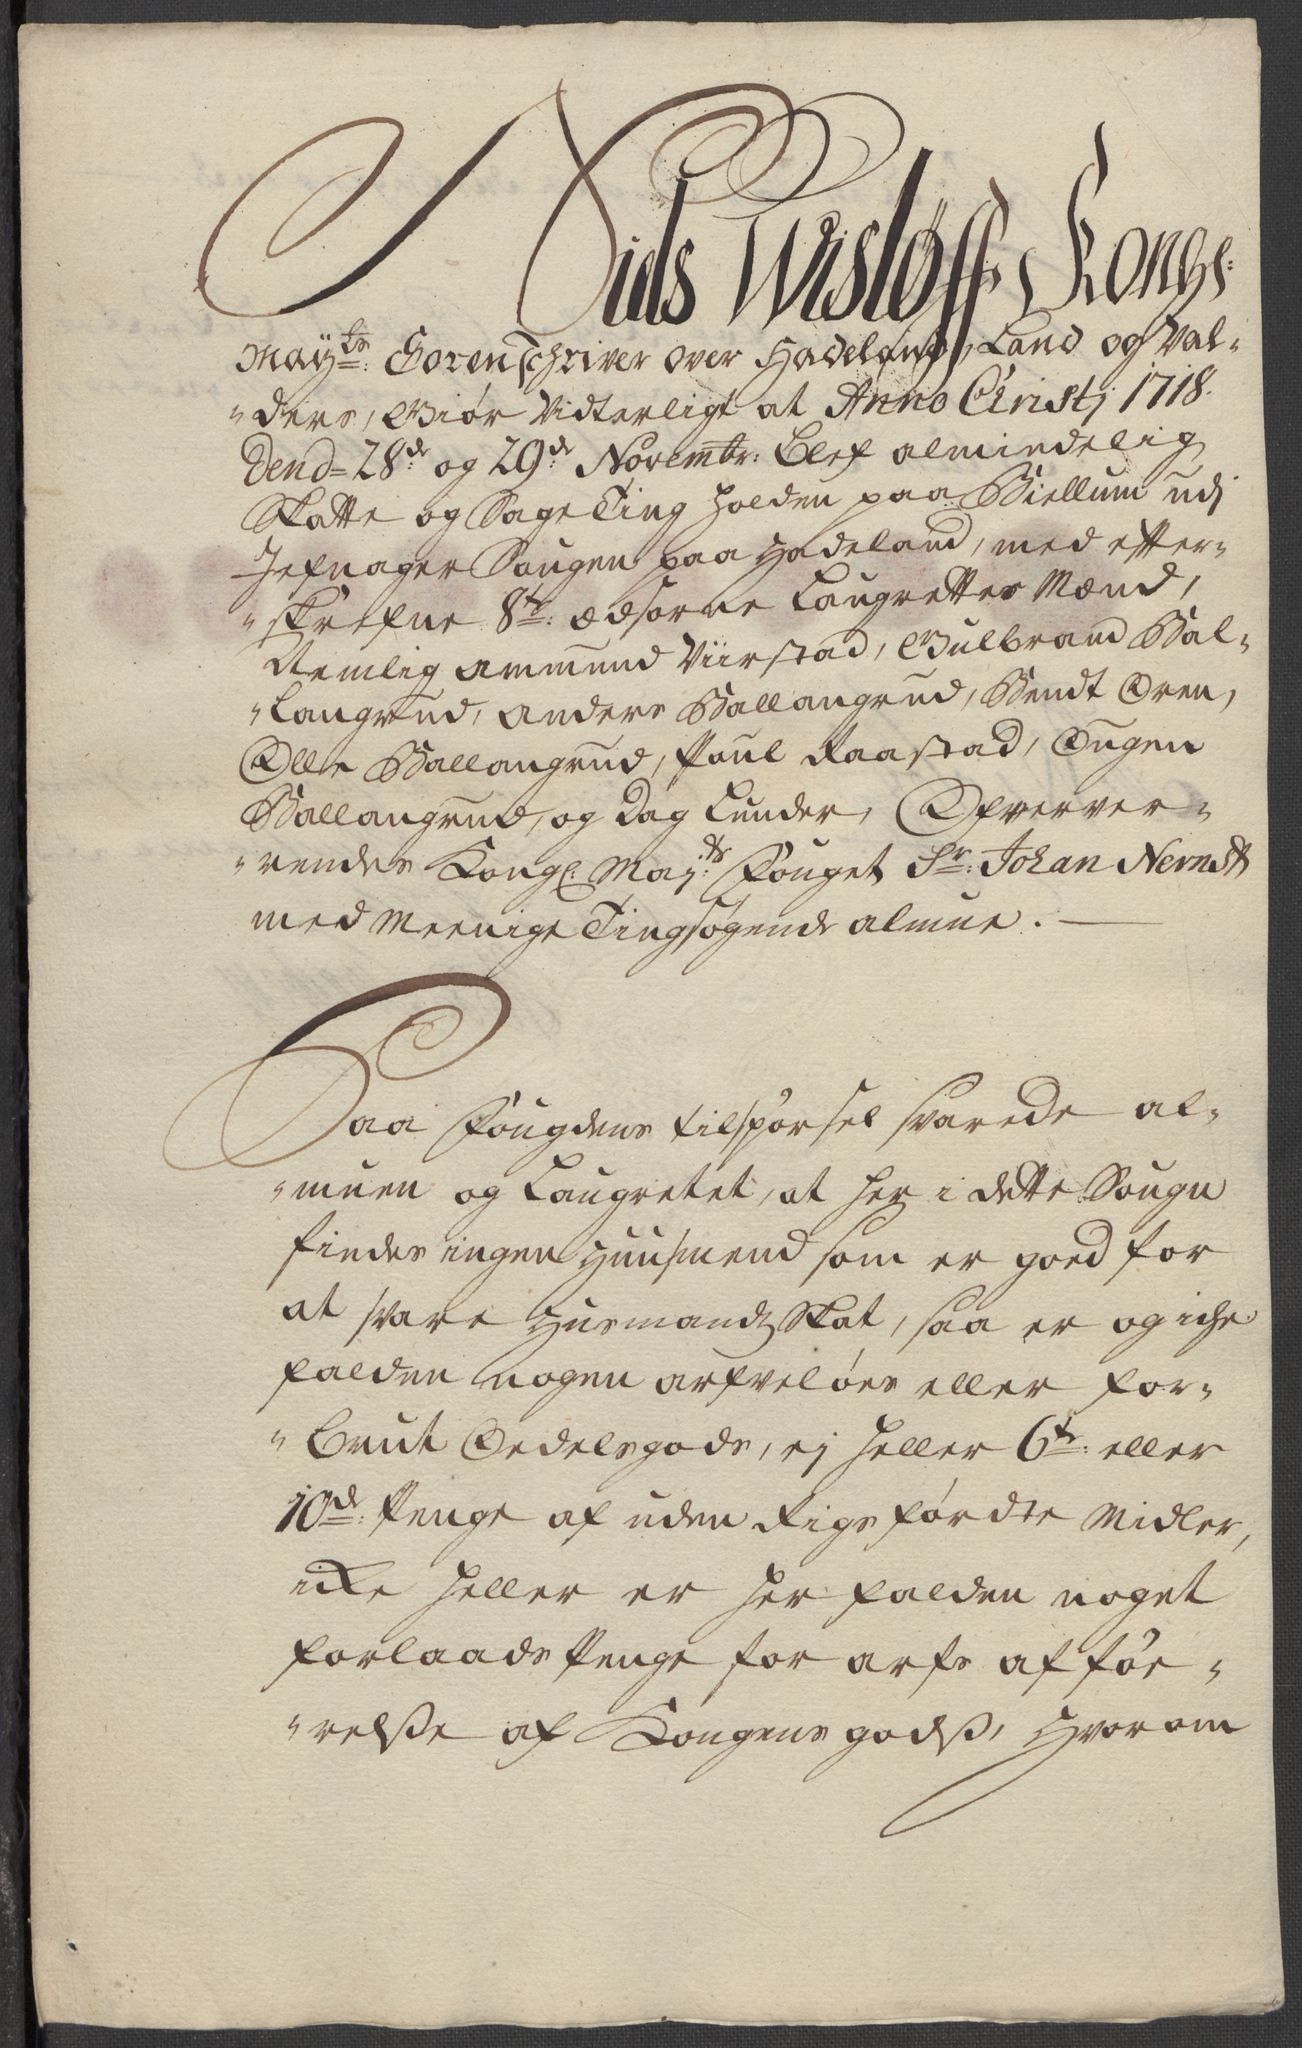 Niels Wisløff Kongl:
Mayts: Sorenschriver over Hadeland, Land og Val-
-ders, Giør Vidterligt at Anno Christj 1718.
Dend= 28de og 29de Novembr: blef almindelig
Skatte og Sage Ting holden paa Biellum udj
Jefnager Sougen paa Hadeland, med efter-
-skrefne 8te: Edsorne Laugrettes Mænd,
Nemlig Ammund Viirstad, Gulbrand Bal-
-langrud, Anders Ballangrud, Bendt Oren,
Olle Ballangrud, Poul Raastad, Ougen
Ballangrud, og Dag Lunder, Ofverver-
-rendes Kongl: Mayts: Fouget Sr: Johan Nerndt
med Meenige Tingsøgende almue.
Paa Fougdens tilspørsel svarede al-
-muen og Laugrettet, at her i dette Sougn
findes ingen Huusmend som er goed for
at svare Husmands Skat, saa er og iche
falden nogen arfveløes eller for-
-brut Oedelsgods, ej heller 6te: eller
10de: Penge af uden Rigs førdte Midler,
icke heller er her falden noget
forlaads Penge for arfs afføe-
-relsse af Kongens godss, Hvorom